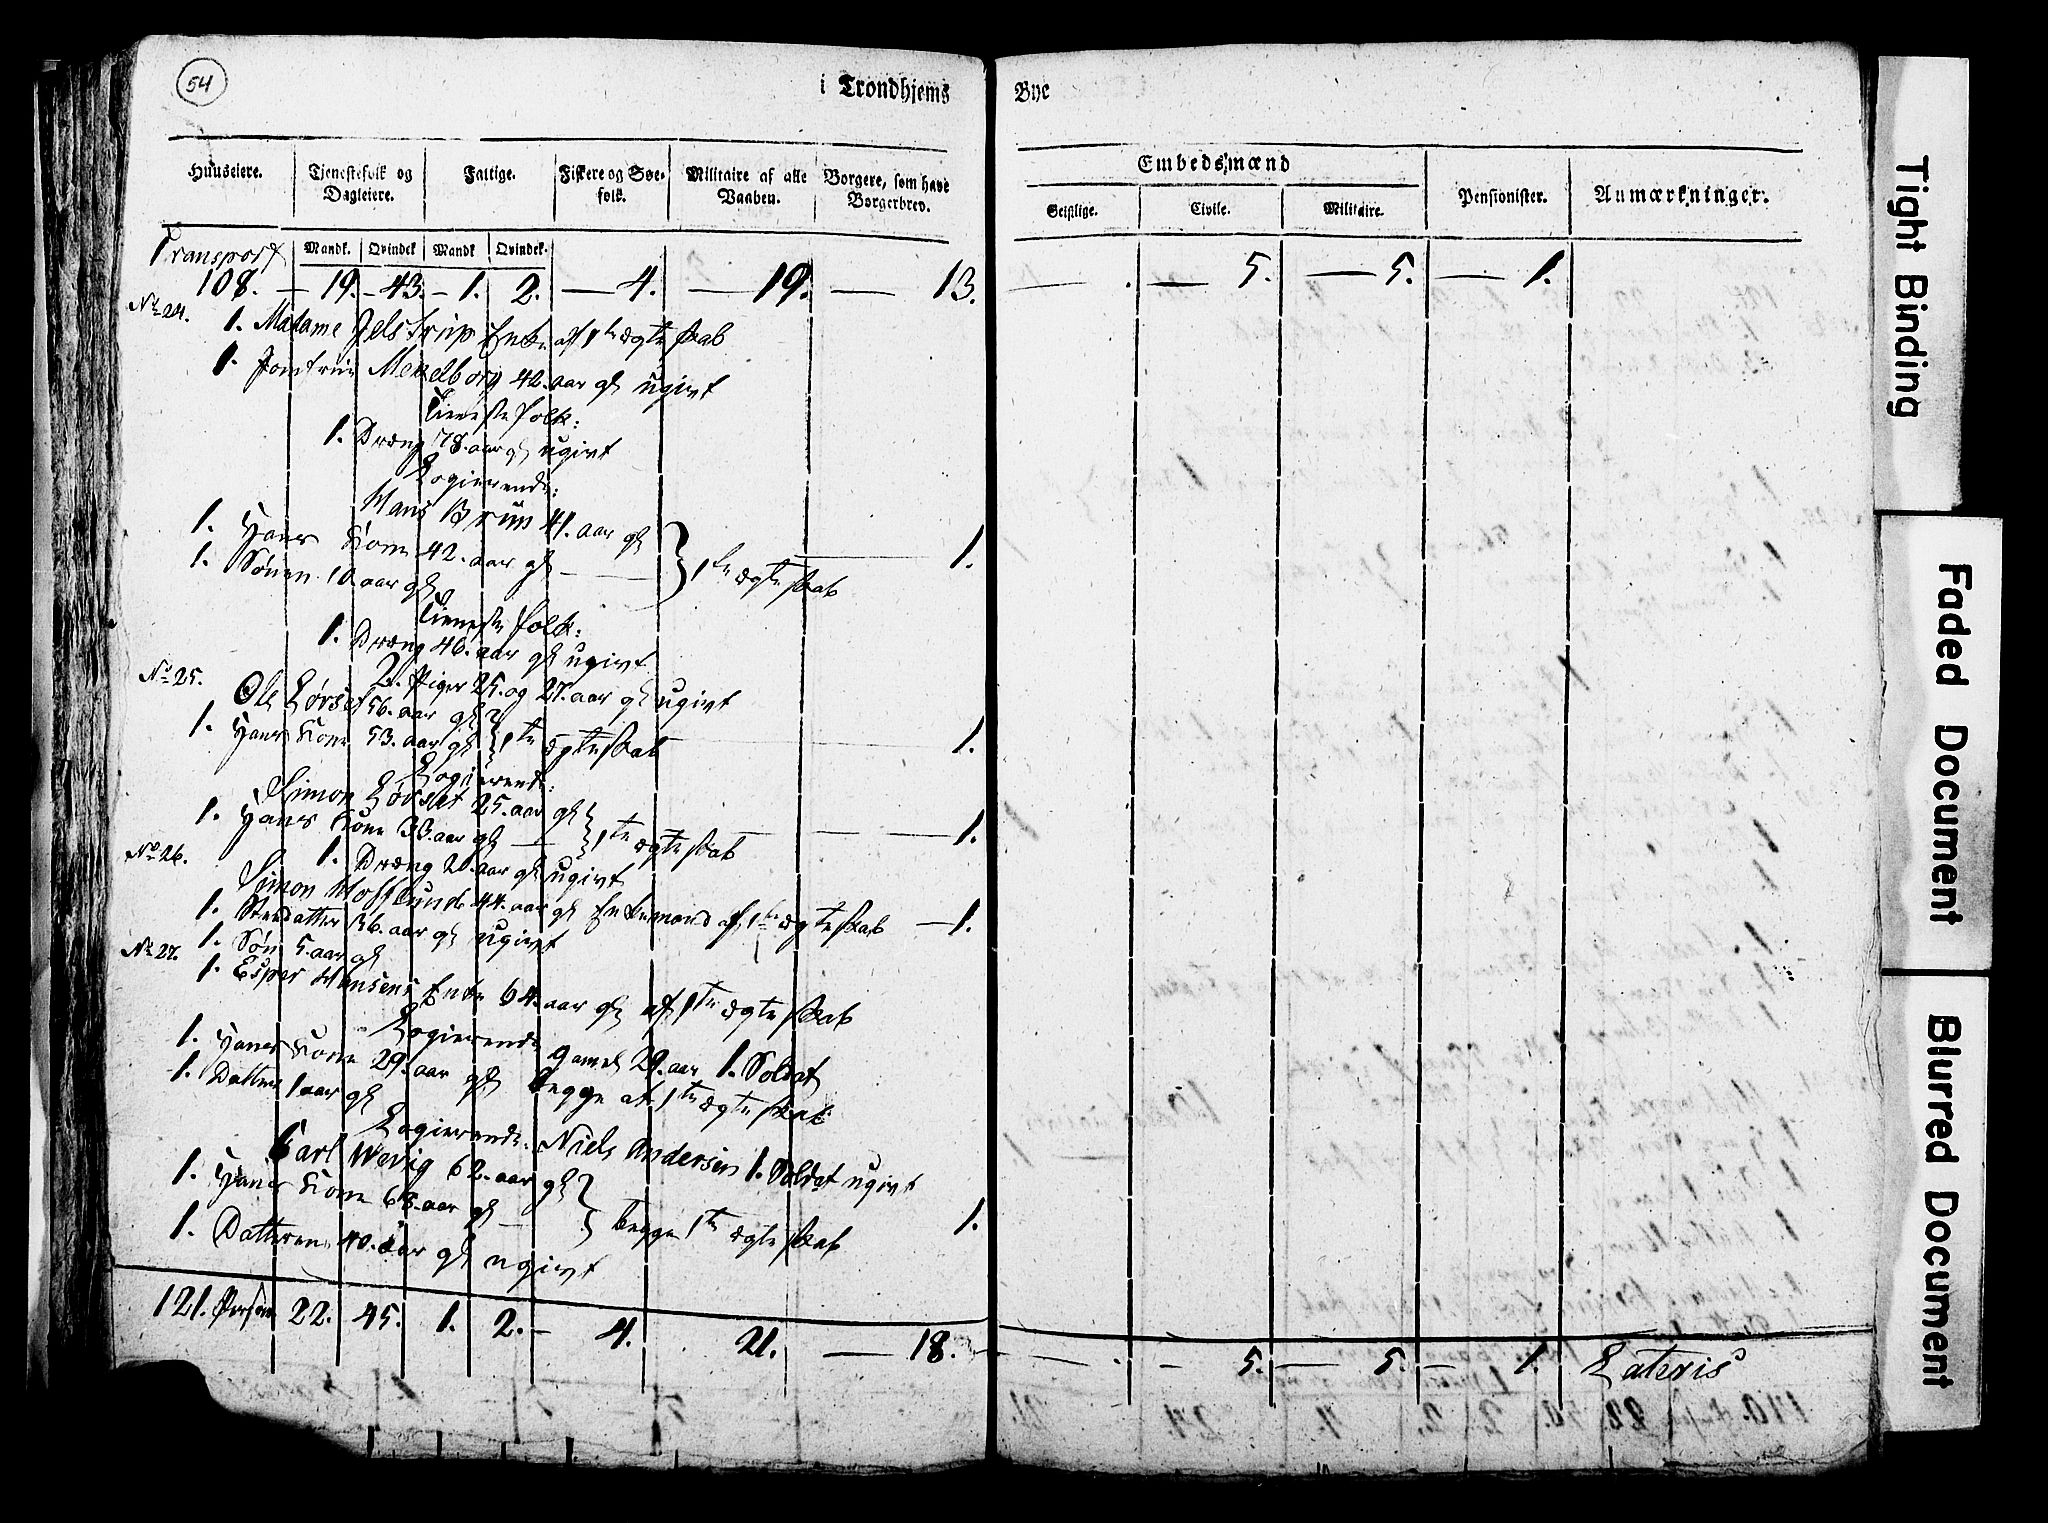 54
i Trondhjems Bye
Huuseiere. Tjenestefolk og Dagleiere. Fattige. Fiskere og Søefolk. Militaire af alle Vaaben. Borgere, som have Borgerbrev. Embedsmænd Pensionister. Anmærkninger.
Mandk. Qvindek Mandk Qvindek. Geistlige. Civile. Militaire.
Transport
108. — 19. – 43. – 1. 2. — 4. — 19. — 13. — . — 5. — 5. — 1.
No 24. 1. Madame Jelstrup Enke af 1te ægteskab
1. Jomfrue Mekelborg 42. aar gl ugivt
Tieneste folk:
1. Dræng 78. aar gl ugivt
Logierende:
Hans Brun 41. aar gl
1. Hans Kone 42. aar gl — } 1te ægteskab 1.
1. Sønen 10 aar gl
Tieneste folk:
1. Dræng 46. aar gl ugivt
2. Piger 25. og 27. aar gl ugivt
No 25. Ole Lørset 56. aar gl
1. Hans Kone 53. aar gl } 1te ægteskab 1.
Logierende:
Simon Lørset 25. aar gl
1. Hans Kone 33. aar gl — } 1te ægteskab — 1.
1. Dræng 20. aar gl ugivt
No 26. Simon 44. aar gl Enkemand af 1te ægteskab — 1.
1. Steddatter 36. aar gl ugivt
1. Søn 5. aar gl
No 27. 1. Esper Hansens Enke 64. aar gl af 1te ægteskab
Logierende
gamel 29. aar 1. Soldat
1. Hans Kone 29. aar gl begge af 1te ægteskab
1. Datter 1 aar gl
Logierende. Niels Andersen 1. Soldat ugivt
Carl Wevig 62. aar gl
1. Hans Kone 63. aar gl — } begge 1te ægteskab 1.
1. Datteren 40. aar gl ugivt
121. Persone 22. 45. 1. 2. – 4. 21. — 18. — . – 5. — 5. – 1. Lateris
Tight Binding
Faded Document
Blurred Document